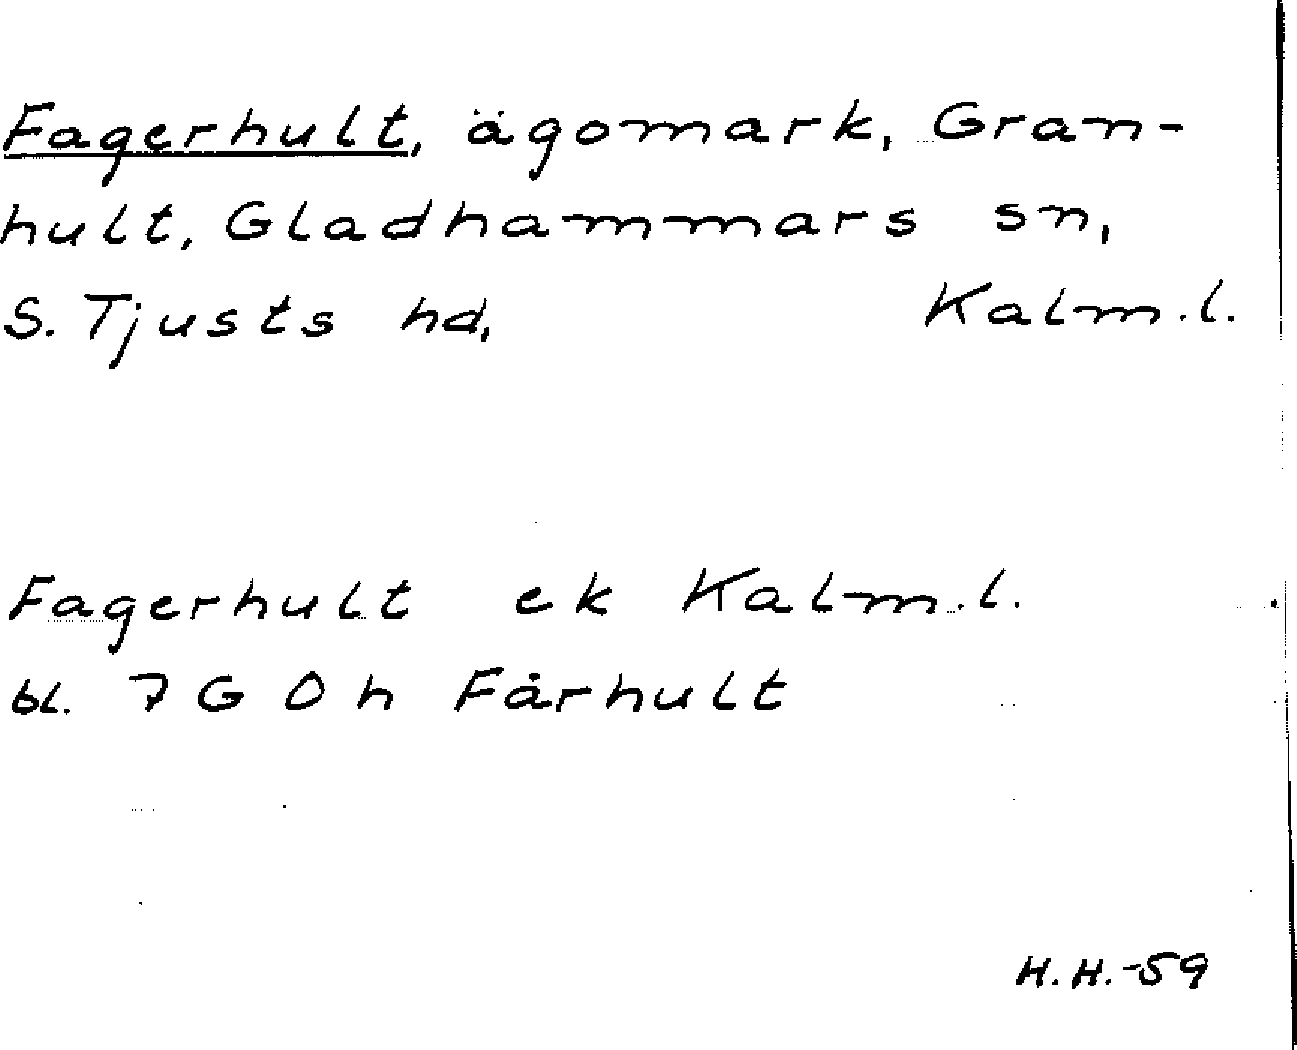 Fagerhult, ägomark, Gran-
hult, Gladhammars sn,
S. Tjusts hd, Kalm.l.
Fagerhult ek Kalm.l.
bl. 7 G 0 h Fårhult
H.H.-59